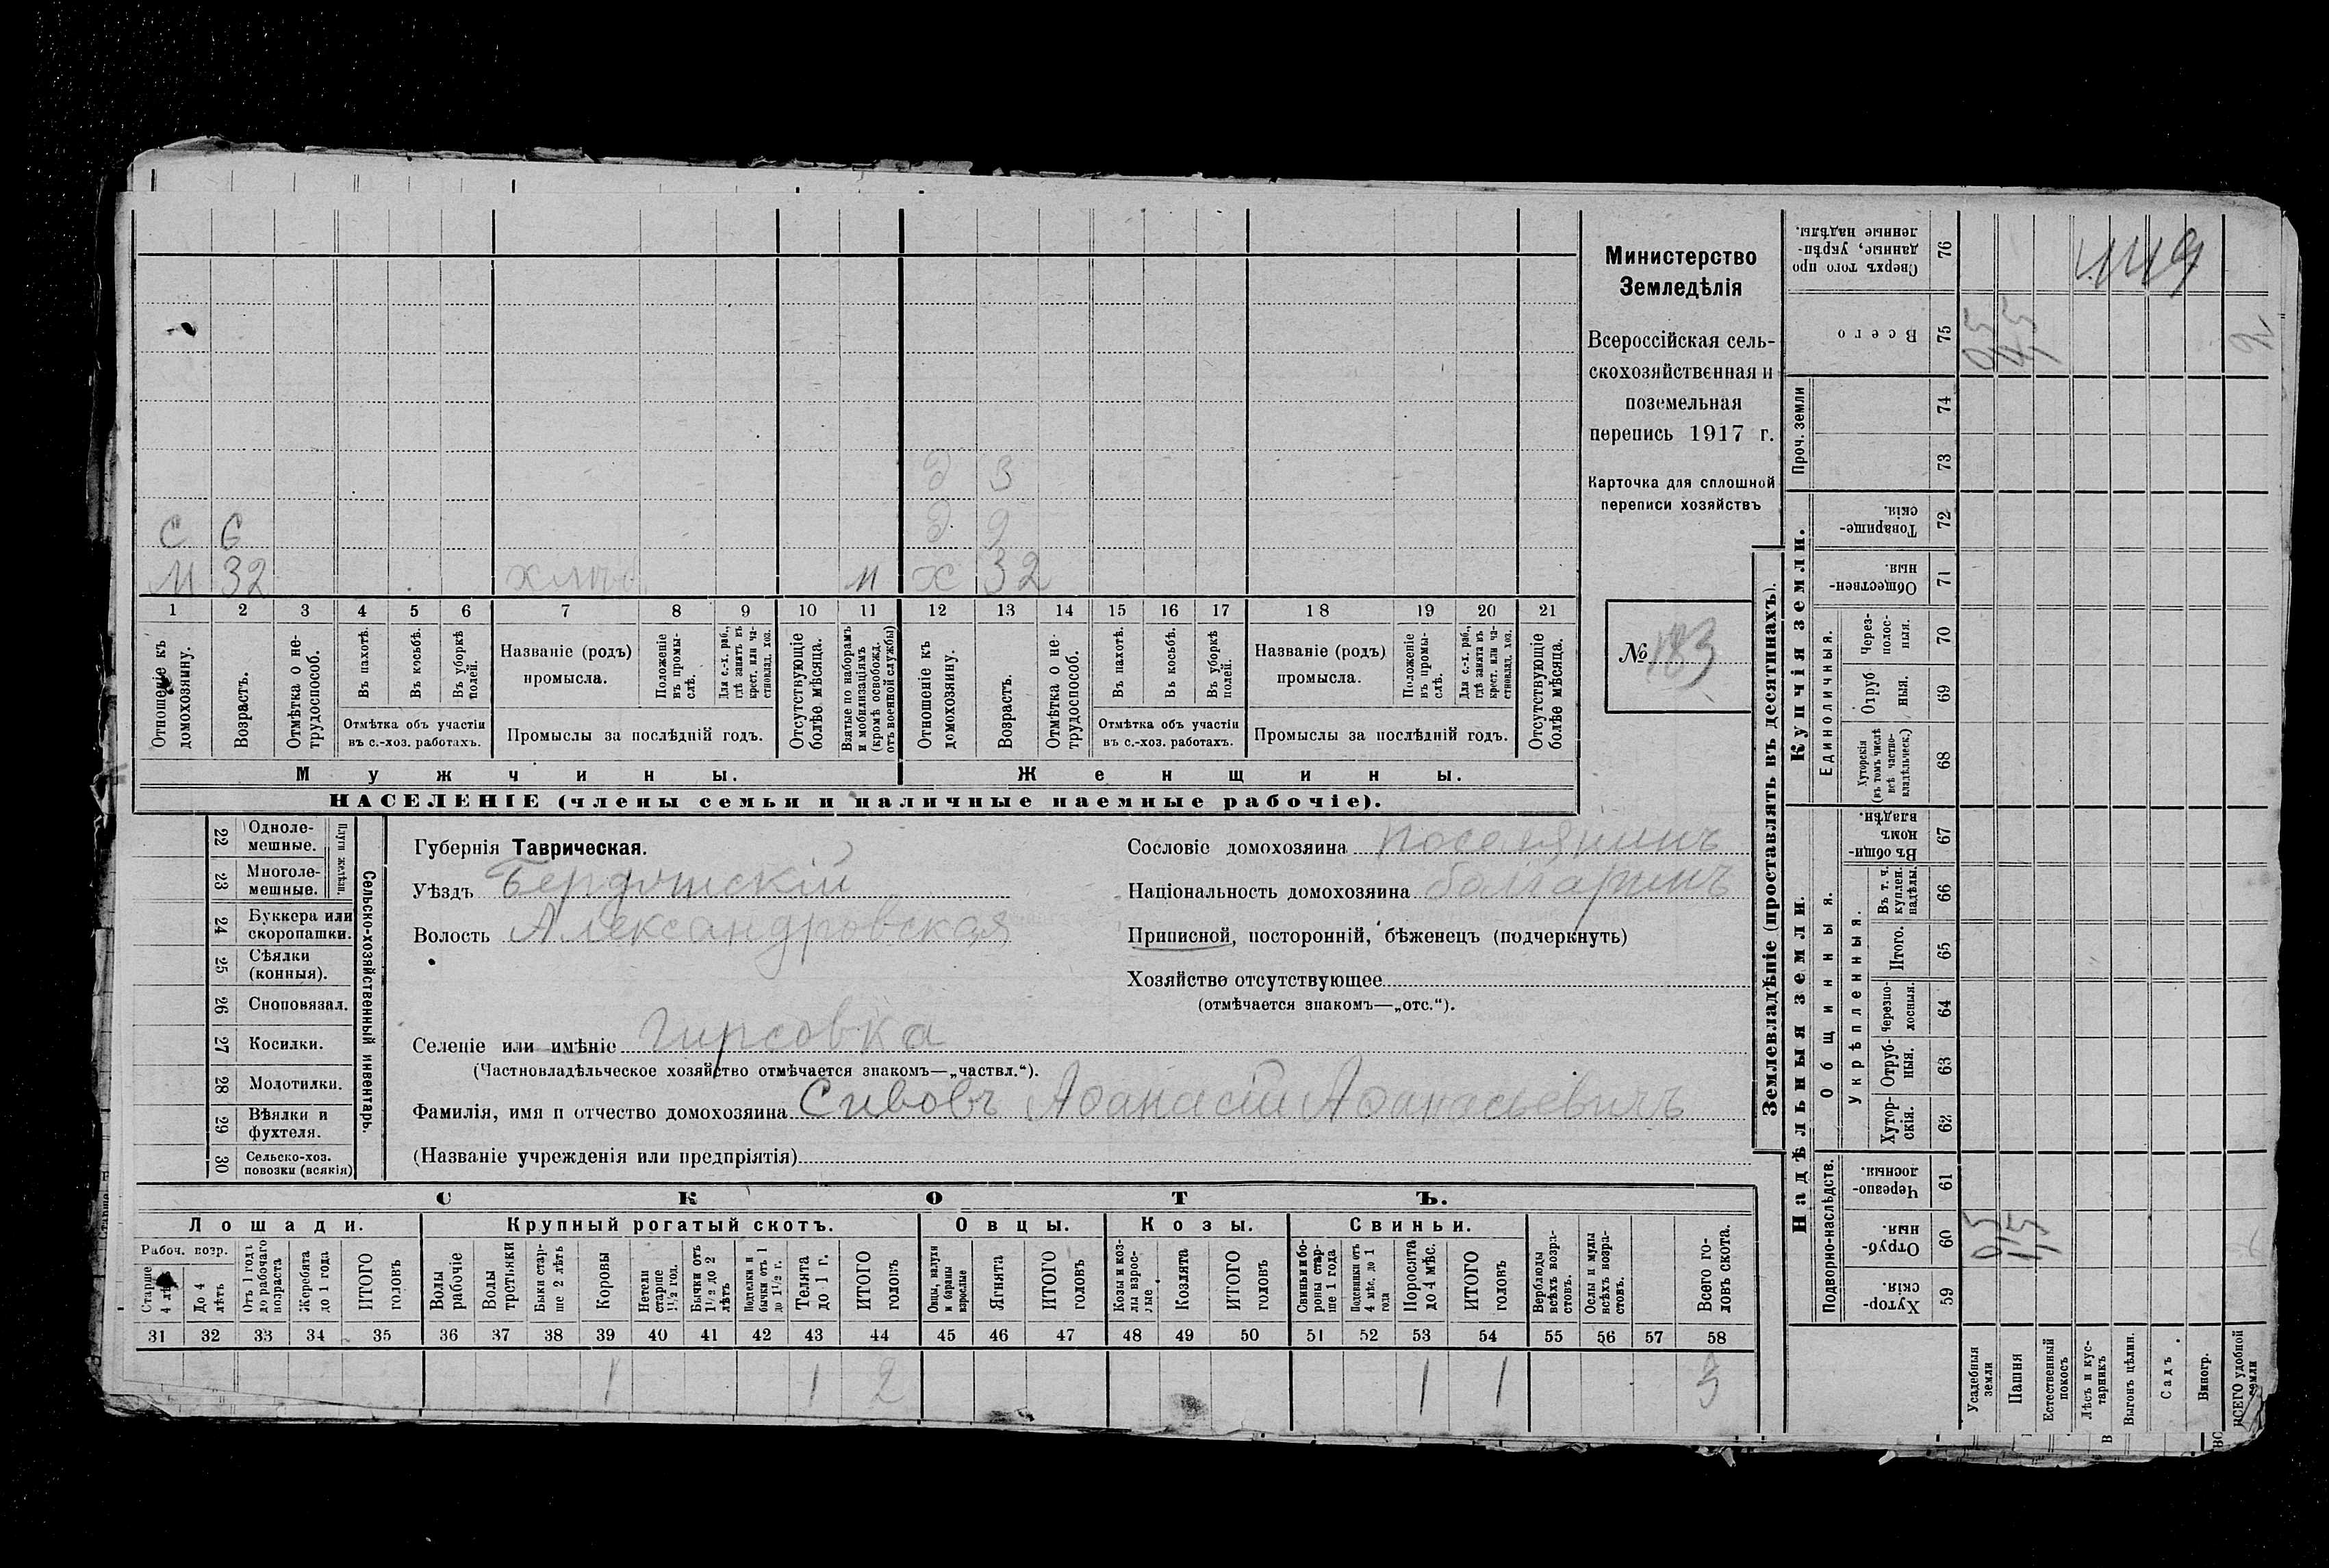 Министерство
Земледѣлія
Всероссійская сель-
скохозяйственная и
поземельная
перепись 1917 г.
Карточка для сплошной
переписи хозяйствъ
№ 183
д 3
С 6 д 9
М 32 м х 32
1 2 3 4 5 6 7 8 9 10 11 12 13 14 15 16 17 18 19 20 21
Отношеніе къ домохозяину.
Возрастъ.
Отмѣтка о не-трудоспособ.
Въ пахотѣ.
Въ косьбѣ.
Въ уборкѣ полей.
Отмѣтка объ участіи
въ с.-хоз. работахъ.
Названіе (родъ)
промысла.
Положеніе въ промы-слѣ.
Для с.-х. раб., гдѣ занятъ въ крест. или ча-стновлад. хоз.
Промыслы за послѣдній годъ.
Отсутствующіе болѣе мѣсяца.
Взятые по наборамъ и мобилизаціямъ (кромѣ освобожд. отъ военной службы)
Отношеніе къ домохозяину.
Возрастъ.
Отмѣтка о не-трудоспособ.
Въ пахотѣ.
Въ косьбѣ.
Въ уборкѣ полей.
Отмѣтка объ участіи
въ с.-хоз. работахъ.
Названіе (родъ)
промысла.
Положеніе въ промы-слѣ.
Для с.-х. раб., гдѣ занята въ крест. или ча-стновлад. хоз.
Промыслы за послѣдній годъ.
Отсутствующіе болѣе мѣсяца.
Мужчины. Женщины.
НАСЕЛЕНІЕ (члены семьи и наличные наемные рабочіе).
Сельско-хозяйственный инвентарь.
Плуги желѣзн.
22 Одноле-мешные.
23 Многоле-мешные.
24 Буккера или скоропашки.
25 Сѣялки (конныя).
26 Сноповязал.
27 Косилки.
28 Молотилки.
29 Вѣялки и фухтеля.
30 Сельско-хоз. повозки (всякія)
Губернія Таврическая.
Уѣздъ Бердянскій
Волость Александровская
Сословіе домохозяина поселянинъ
Національность домохозяина болгаринъ
Приписной, посторонній, бѣженецъ (подчеркнуть)
Хозяйство отсутствующее
(отмѣчается знакомъ—„отс.“).
Селеніе или имѣніе Гирсовка
(Частновладѣльческое хозяйство отмѣчается знакомъ—„частвл.“).
Фамилія, имя и отчество домохозяина Сивовъ Афанасій Афанасьевичъ
(Названіе учрежденія или предпріятія)
СКОТЪ.
Лошади. Крупный рогатый скотъ. Овцы. Козы. Свиньи.
Рабоч. возр.
Старше 4 лѣтъ
До 4 лѣтъ
Отъ 1 года до рабочаго возраста
Жеребята до 1 года
ИТОГО головъ
Волы рабочіе
Волы третьяки
Быки стар-ше 2 лѣтъ
Коровы
Нетели старше 1½ год.
Бычки отъ 1½ до 2 лѣтъ
Подтелки и бычки отъ 1 до 1½ г.
Телята до 1 г.
ИТОГО головъ
Овцы, валухи и бараны взрослые
Ягнята
ИТОГО головъ
Козы и коз-лы взрос-лые
Козлята
ИТОГО головъ
Свиньи и бо-ровы стар-ше 1 года
Подсвинки отъ 4 мѣс. до 1 года
Поросята до 4 мѣс.
ИТОГО головъ
Верблюды всѣхъ возра-стовъ.
Ослы и мулы всѣхъ возра-стовъ.
Всего го-ловъ скота.
31 32 33 34 35 36 37 38 39 40 41 42 43 44 45 46 47 48 49 50 51 52 53 54 55 56 57 58
1 1 2 1 1 3
Землевладѣніе (проставлять въ десятинахъ).
Надѣльныя земли.
Купчія земли.
Проч. земли
Подворно-наслѣдств.
Общинныя.
Укрѣпленныя.
Единоличныя.
59 Хутор-скія.
60 Отруб-ныя.
61 Черезпо-лосныя.
62 Хутор-скія.
63 Отруб-ныя.
64 Черезпо-лосныя.
65 Итого.
66 Въ т. ч. куплен. надѣлы.
67 Въ общи-номъ владѣн.
68 Хуторскія (въ томъ числѣ всѣ частно-владѣльческ.)
69 Отруб ныя.
70 Через-полос-ныя.
71 Обществен-ныя.
72 Товарище-скія.
73
74
75 Всего
76 Сверхъ того про данные, укрѣп-ленные надѣлы.
Усадебныя земли
Пашня
Естественный покосъ
Лѣсъ и кус-тарникъ
Выгонъ цѣлин.
Садъ.
Виногр.
ВСЕГО удобной земли
0,5
1,5
2